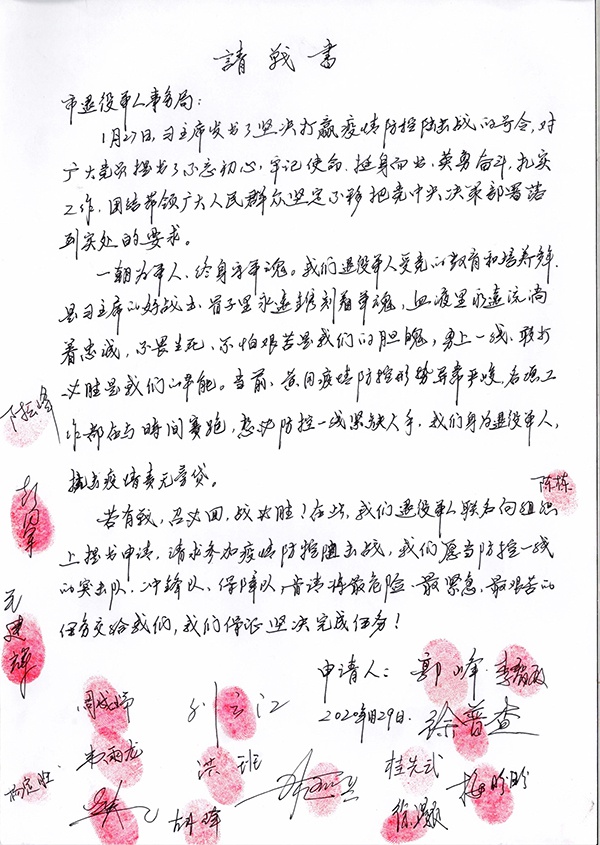 請戰書
市退役军人事务局：
1月27日，习主席发出了坚决打赢疫情防控阻击战的号令，对
广大党员提出了不忘初心、牢记使命、挺身而出、英勇奋斗、扎实
工作，团结带领广大人民群众坚定不移把党中央决策部署落
到实处的要求。
一朝为军人、终身守军魂。我们退役军人受党的教育和培养
是习主席的好战士，骨子里永远镌刻着军魂，血液里永远流淌
着忠诚，不畏生死、不怕艰苦是我们的胆魄，勇上一线、敢打
必胜是我们的本能。当前，黄冈疫情防控形势异常严峻，各项工
作都在与时间赛跑，想必防控一线紧缺人手，我们身为退役军人，
抗击疫情责无旁贷。
陈栋
若有战，召必回，战必胜！在此，我们退役军人联名向组织
上提出申请，请求参加疫情防控阻击战，我们愿当防控一线
的突击队、冲锋队、保障队，肯请将最危险、最紧急、最艰苦的
任务交给我们，我们保证坚决完成任务！
申请人：郭峰
2020年1月29日
徐普查
洪班
桂先武
胡峰